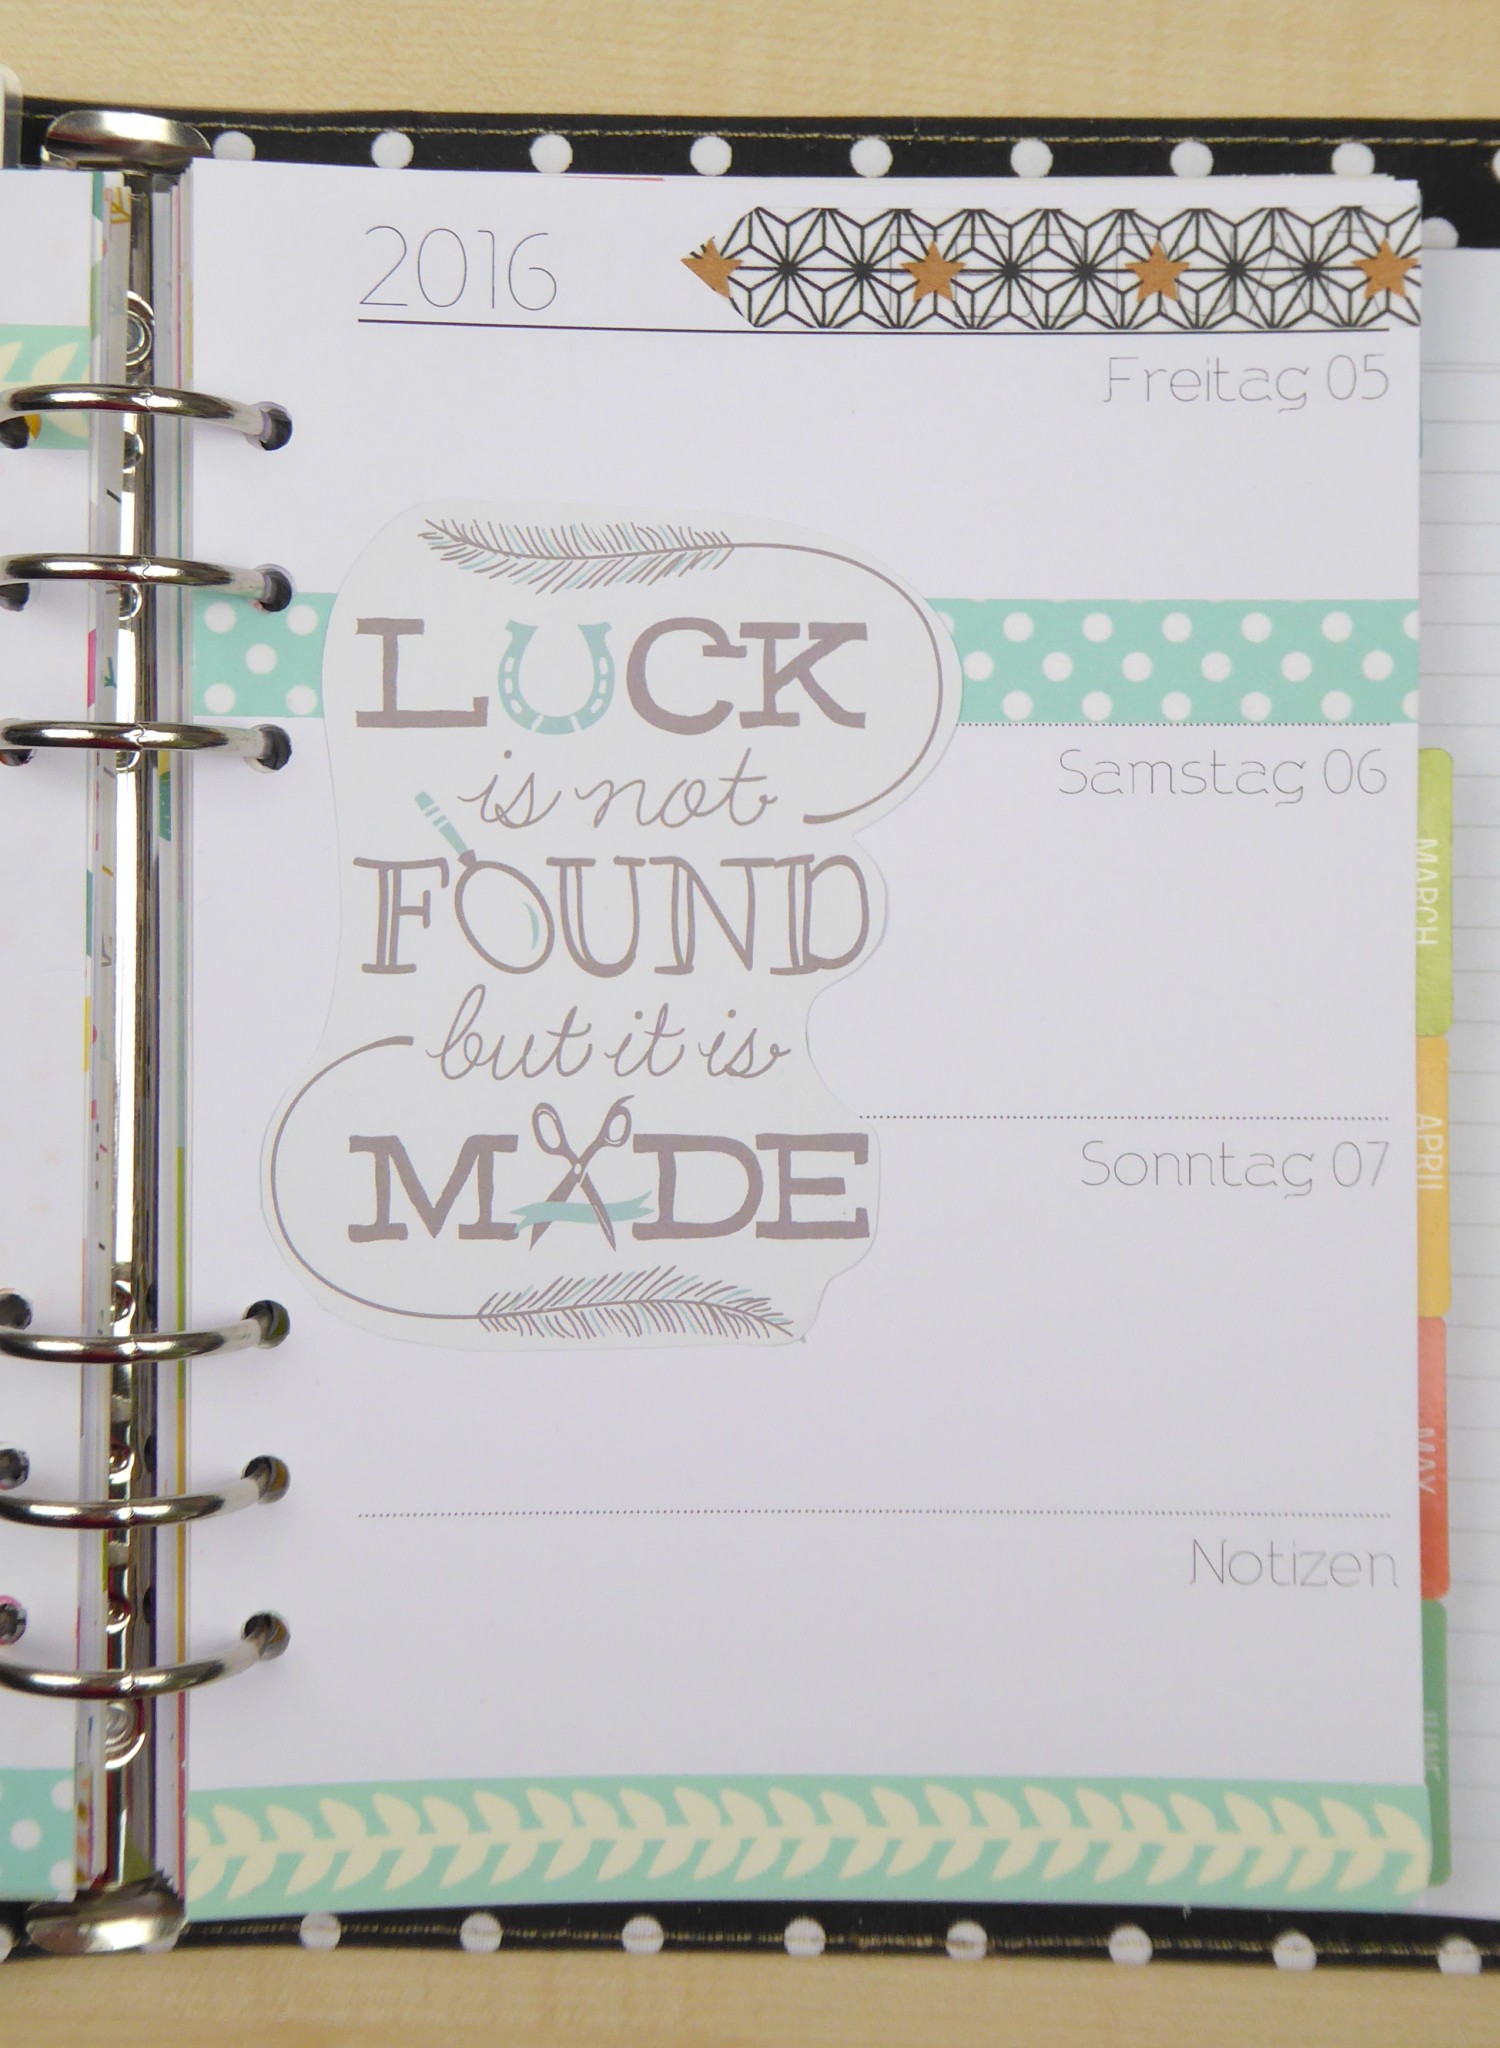 2016 FEBRUAR
Freitag 05
LUCK
is not
Samstag 06
FOUND
but it is
MADE
Sonntag 07
Notizen
MARCH
APRIL
MAY
JUNE